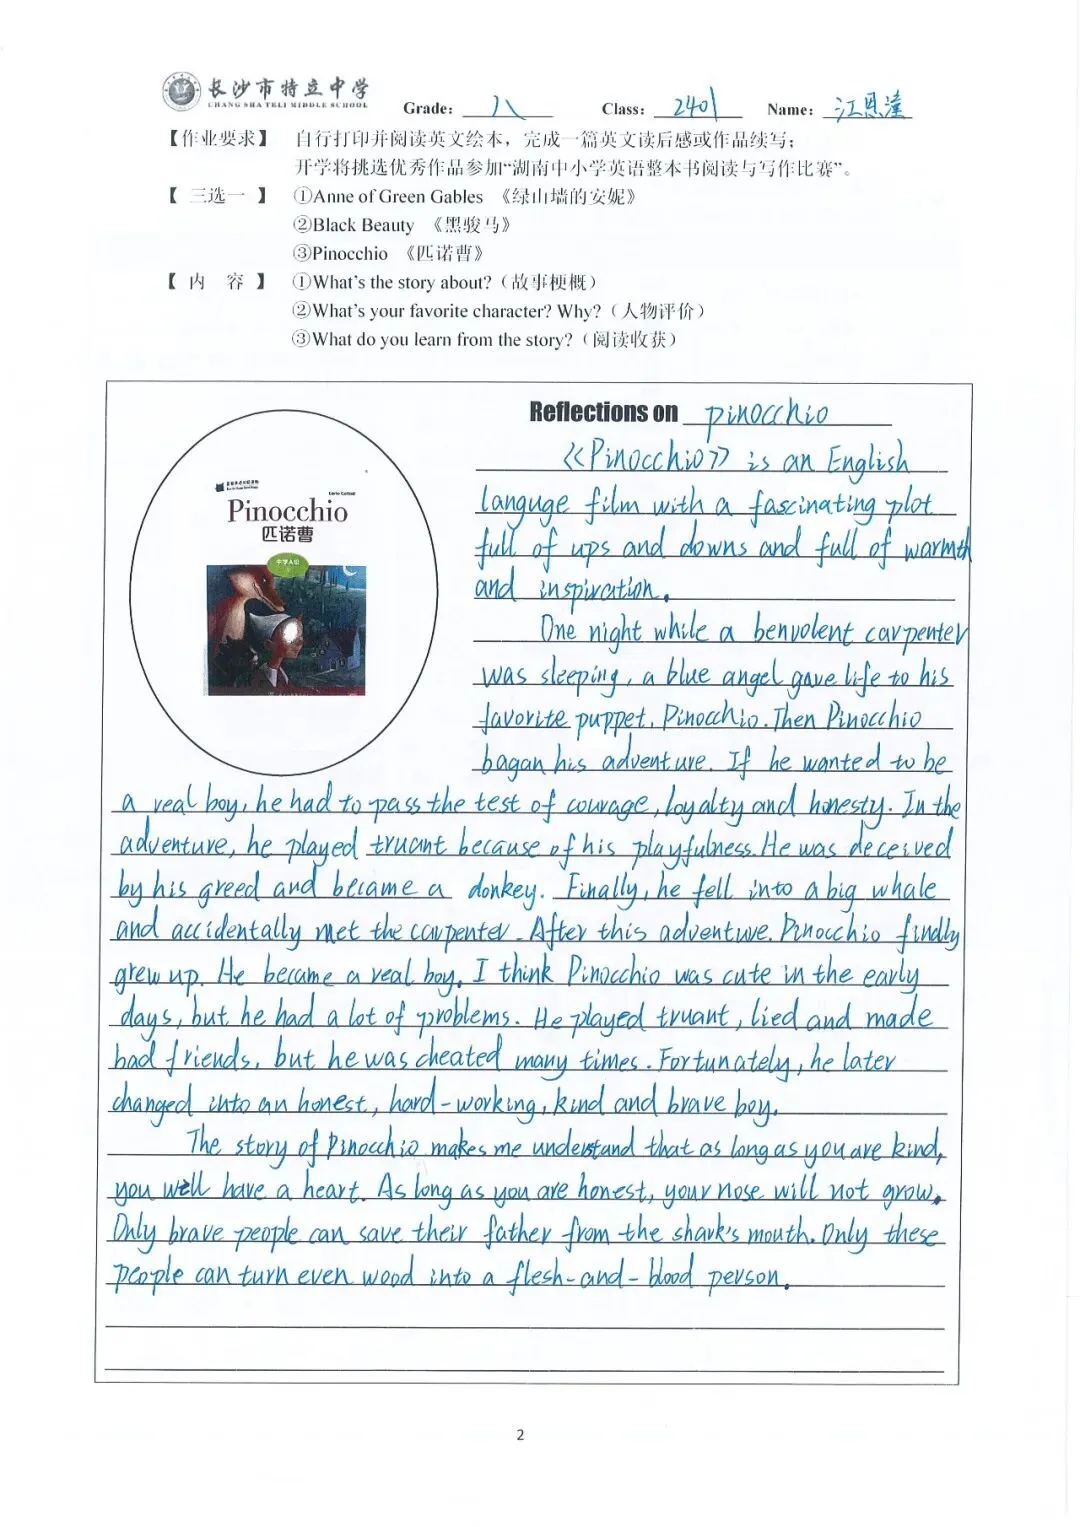 长沙市特立中学
CHANG SHA TELI MIDDLE SCHOOL
Grade: 八 Class: 2401 Name: 江恩潼
【作业要求】 自行打印并阅读英文绘本，完成一篇英文读后感或作品续写；
开学将挑选优秀作品参加“湖南中小学英语整本书阅读与写作比赛”。
【 三选一 】 ①Anne of Green Gables 《绿山墙的安妮》
②Black Beauty 《黑骏马》
③Pinocchio 《匹诺曹》
【 内 容 】 ①What's the story about?（故事梗概）
②What's your favorite character? Why?（人物评价）
③What do you learn from the story?（阅读收获）
Reflections on pinocchio
Carlo Collodi
Pinocchio
匹诺曹
《Pinocchio》 is an English
languge film with a fascinating plot
full of ups and downs and full of warmth
and inspiration.
One night while a benvolent carpenter
was sleeping, a blue angel gave life to his
favorite puppet, Pinocchio. Then Pinocchio
bagan his adventure. If he wanted to be
a real boy, he had to pass the test of courage, loyalty and honesty. In the
adventure, he played truant because of his playfulness. He was deceived
by his greed and became a donkey. Finally, he fell into a big whale
and accidentally met the carpenter. After this adventure. Pinocchio findly
grew up. He became a real boy. I think Pinocchio was cute in the early
days, but he had a lot of problems. He played truant, lied and made
bad friends, but he was cheated many times. Fortunately, he later
changed into an honest, hard-working, kind and brave boy.
The story of Pinocchio makes me understand that as long as you are kind,
you will have a heart. As long as you are honest, your nose will not grow.
Only brave people can save their father from the shark's mouth. Only these
people can turn even wood into a flesh-and-blood person.
2